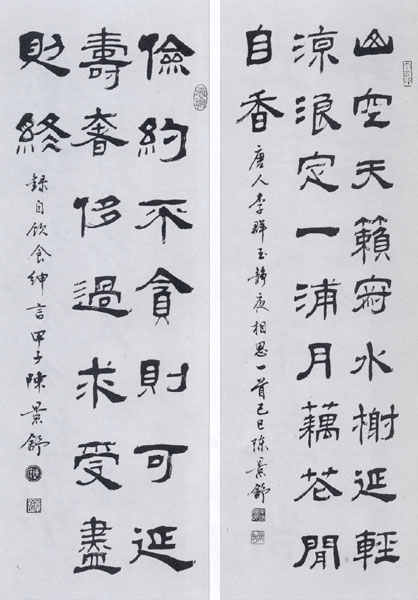 山空天籟寂水榭延輕
涼浪定一浦月藕花閒
自香
唐人李群玉靜夜相思一首己巳陳景舒
儉約不貪則可延
壽奢侈過求受盡
財終
錄自飲食紳言甲子陳景舒